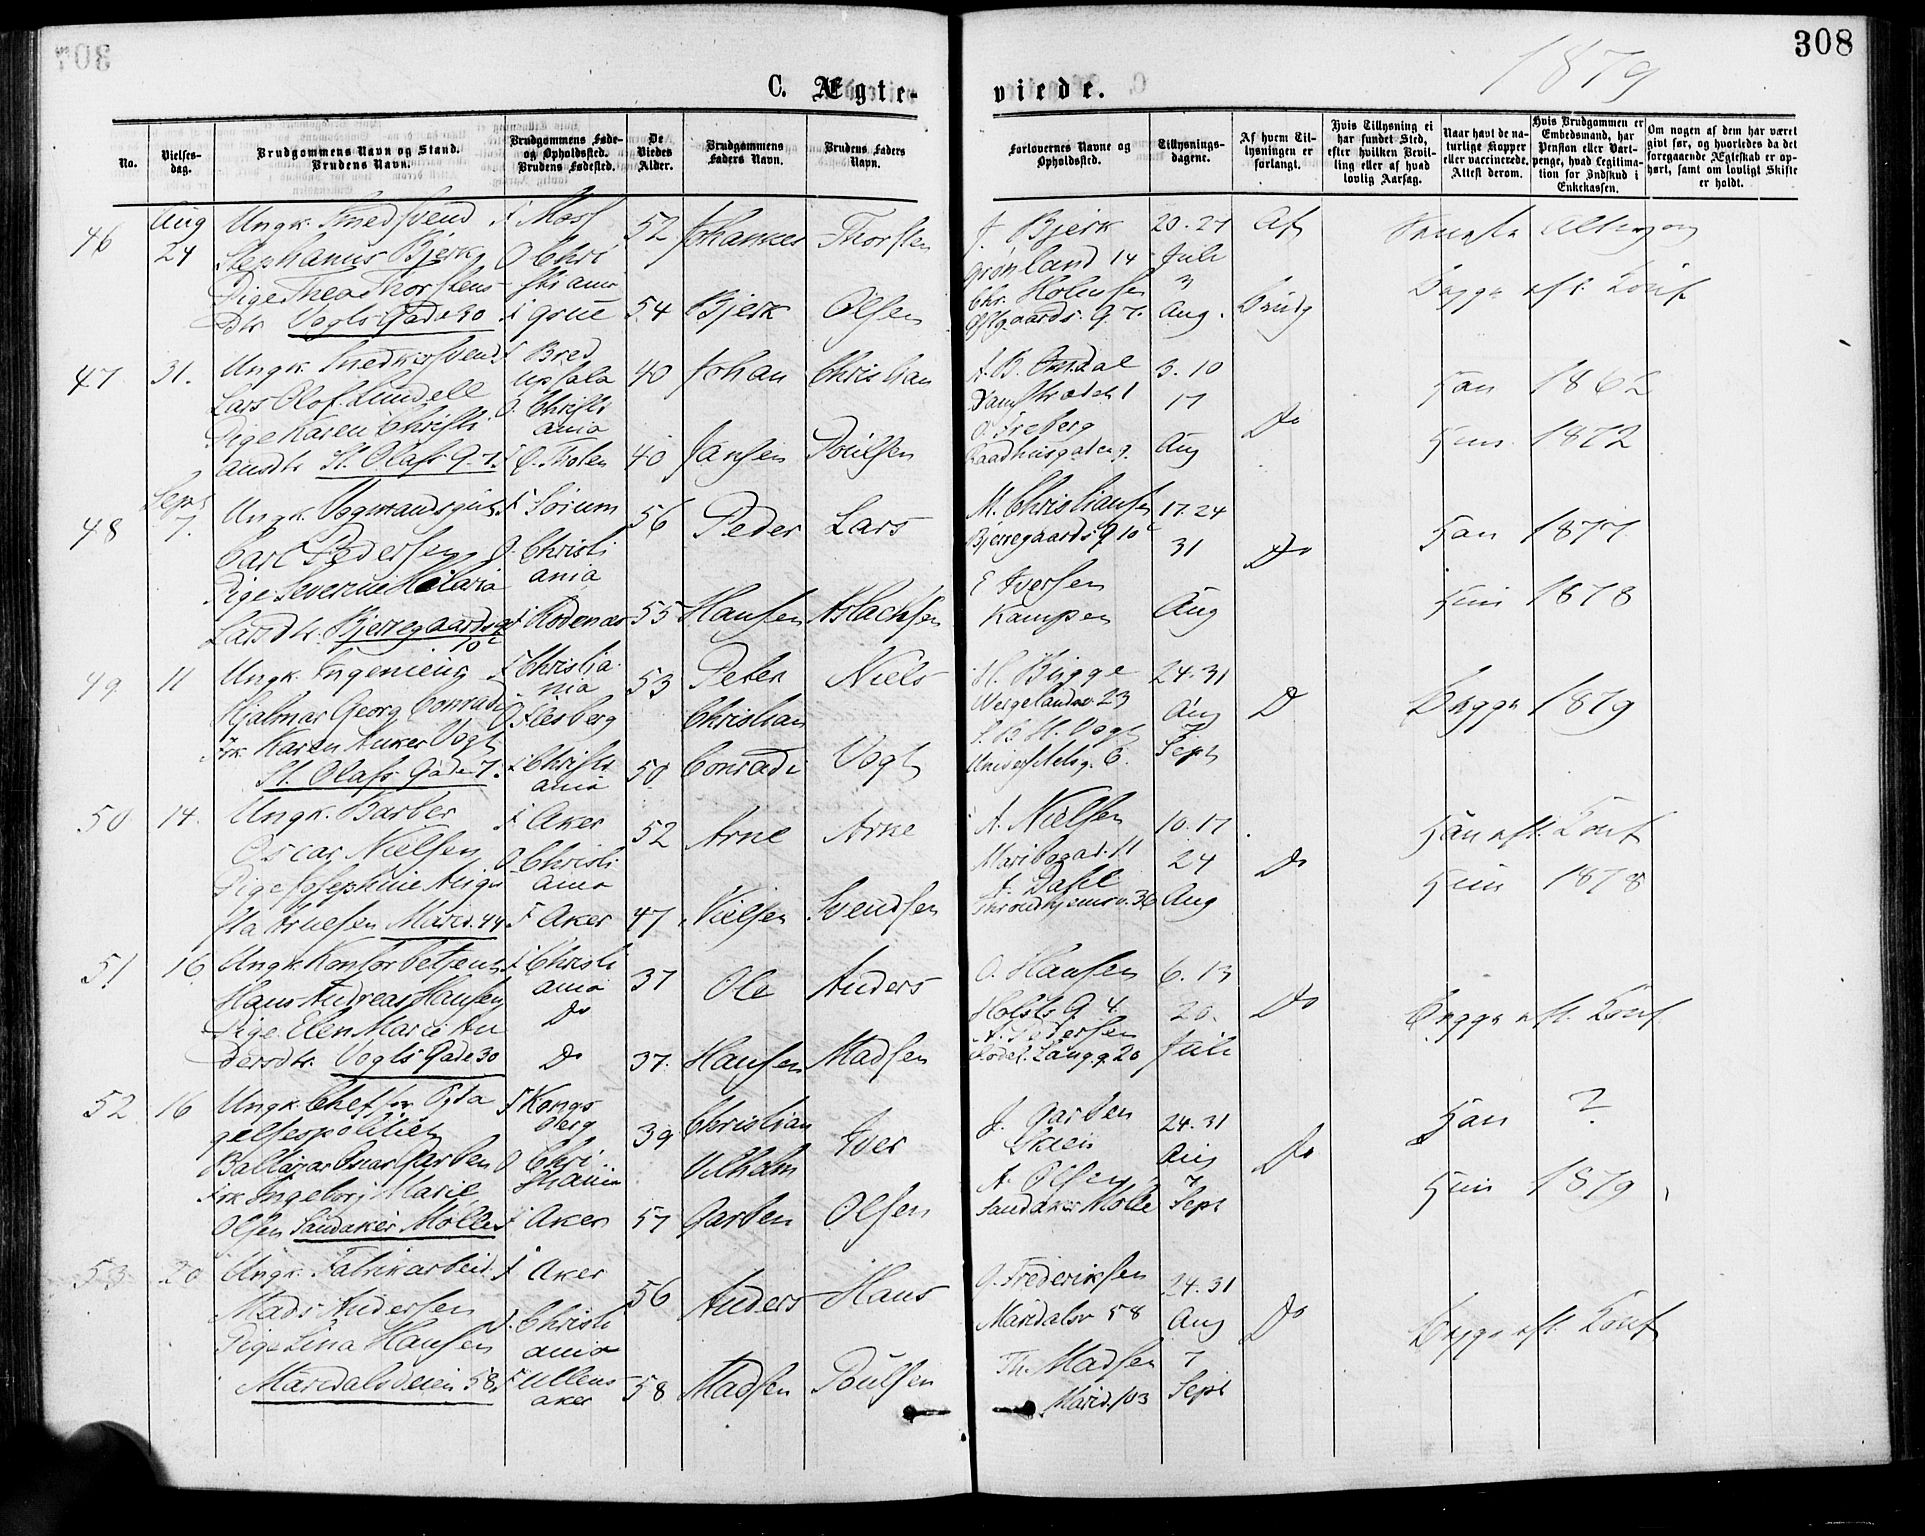 308
1879
C. Ægte-
viede.
No.
Vielses-
dag.
Brudgommens Navn og Stand.
Brudens Navn.
Brudgommens Føde-
og Opholdssted.
Brudens Fødested.
De
Viedes
Alder.
Brudgommens
Faders Navn.
Brudens Faders
Navn.
Forlovernes Navne og
Opholdssted.
Tillysnings-
dagene.
Af hvem Til-
lysningen er
forlangt.
Hvis Tillysning ei
har fundet Sted,
efter hvilken Bevil-
ling eller af hvad
lovlig Aarsag.
Naar havt de na-
turlige Kopper
eller vaccinerede.
Attest derom.
Hvis Brudgommen er
Embedsmand, har
Pension eller Vart-
penge, hvad Legitima-
tion for Indskud i
Enkekassen.
Om nogen af dem har været
givt før, og hvorledes da det
foregaaende Ægteskab er op-
hørt, samt om lovligt Skifte
er holdt.
46
Aug
24
Ungk. Snedsvend
Stephanus Bjerk
Pige Thea Thorstens
Dtr. Vogts Gade 30
F Moss
O Chri
stiania
F Grue
52
54
Johannes
Bjerk
Thorsten
Olsen
J. Bjerk
Grønland 14
Chr. Holmsen
Østgaards. G. 7.
20. 27
Juli
3
Aug.
Af
Brudg
Begge eft. Konf
47
31.
Ungk. Snedkersvend
Lars Olof Lundell
Pige Karen Christi
ansdtr St. Olafs G. 7.
F Bred
Upsala
O. Christi
ania
F Ø. Thoten
40
40
Johan
Jansen
Christian
Poulsen
A. B. Omdal
Damstrædet 1
O. Freberg
Raadhusgaden 9.
3. 10
17
Aug
Do
Han 1862
Hun 1872
48
Sept
7.
Ungk. Vognmandsgut
Carl Pedersen
Pige Severine Hilaria
Larsdtr. Bjerregaardsg
10c
F Sørum
O. Christi
ania
F Rodenæs
56
55
Peder
Hansen
Lars
Aslachsen
M. Christiansen
Bjerregaards G 10 c
E Iversen
Kampen
17. 24
31
Aug
Do
Han 1877
Hun 1878
49
11
Ungk. Ingeniør
Hjalmar Georg Conradi
Frk. Karen Anker Vogt
St. Olafs Gade 7.
F Christia
nia
O Flesberg
F Christi
ania
53
50
Peter
Christian
Conradi
Niels
Vogt
H. Bügge
Wergelandsv. 23
Universitetsg. 6.
24. 31
Aug
7
Sept
Do
Begge 1879
50
14.
Ungk. Barber
Oscar Nielsen
Pige Josephine Augu
sta Arnesen Marid. 44
F Aker
O Christi
ania
F Aker
52
47
Arne
Nielsen
Arne
Svendsen
A. Nielsen
Maribogad. 11
A. Dahl
Throndhjemsv. 36
10. 17
24
Aug
Do
Han eft. Konf
Hun 1878
51
16
Ungk. Kontorbetjent
Hans Andreas Hansen
Pige Elen Marie An
dersdtr. Vogts Gade 30
F Christi
ania
Do
Do
37
37.
Ole
Hansen
Anders
Madsen
O. Hansen
Holsts G. 4.
A. Pedersen
Rodel. Langg. 20
6. 13
20.
Juli
Do
Begge eft. Konf
52
16
Ungk. Chef for Opda
gelsespolitiet
Baltazar Oscar Garben
Frk Ingeborg Marie
Olsen Sandaker Mølle
F Kongs
berg
O Chri
stiania
F Aker
39
57
Christian
Vilhelm
Garben
Iver
Olsen
J. Garben
Skien
A. Olsen
Sandaker Mølle
24. 31
Aug
7
Sept
Do
Han ?
Hun 1879
53
20
Ungk. Fabrikarbeid.
Mads Andersen
Pige Lina Hansen
Maridalsveien 58.
F Aker
O. Christi
ania
F Ullens
aker
56
58
Anders
Madsen
Hans
Poulsen
O. Frederiksen
Maridalsv 58
Th. Madsen
Marid. 103
24. 31
Aug
7
Sept
Do
Begge eft. Konf